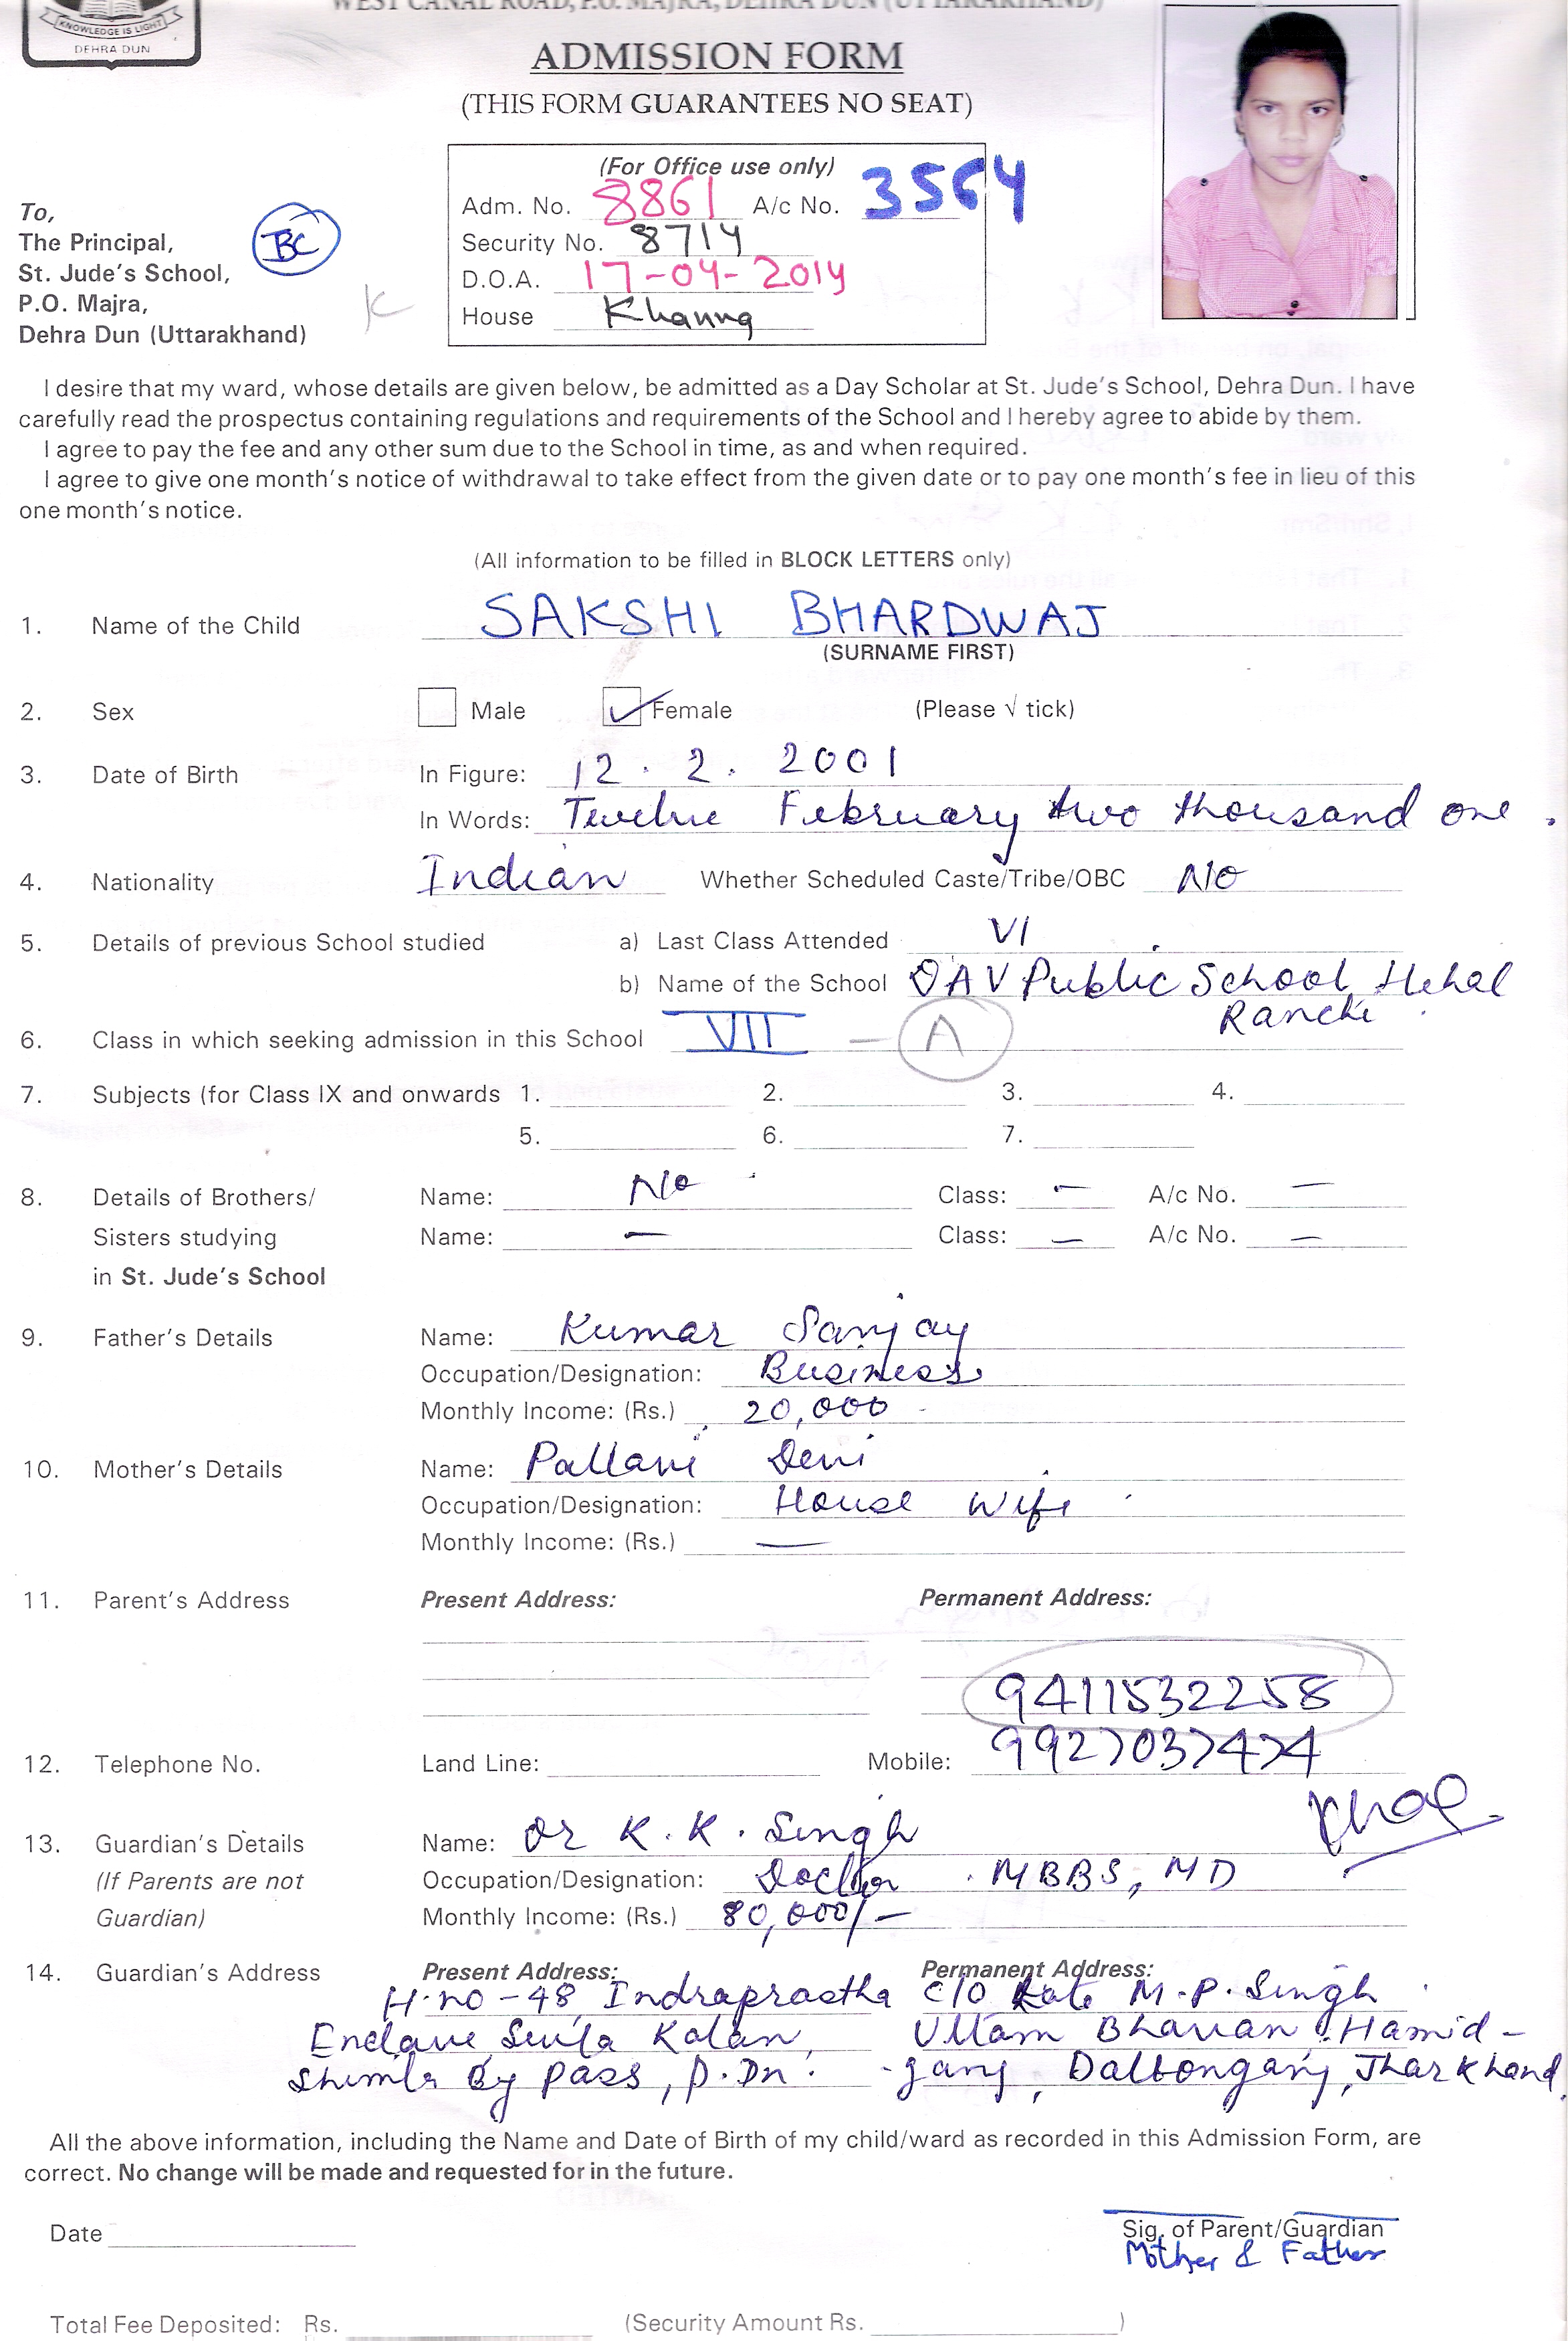 WEST CANAL ROAD, P.O. MAJRA, DEHRA DUN (UTTARAKHAND)
KNOWLEDGE IS LIGHT
DEHRA DUN
ADMISSION FORM
(THIS FORM GUARANTEES NO SEAT)
(For Office use only)
Adm. No. 8861 A/c No. 3564
Security No. 8714
D.O.A. 17-04-2014
House Khanna
To,
The Principal,
St. Jude's School,
P.O. Majra,
Dehra Dun (Uttarakhand)
BC
K
I desire that my ward, whose details are given below, be admitted as a Day Scholar at St. Jude's School, Dehra Dun. I have
carefully read the prospectus containing regulations and requirements of the School and I hereby agree to abide by them.
I agree to pay the fee and any other sum due to the School in time, as and when required.
I agree to give one month's notice of withdrawal to take effect from the given date or to pay one month's fee in lieu of this
one month's notice.
(All information to be filled in BLOCK LETTERS only)
1. Name of the Child SAKSHI BHARDWAJ
(SURNAME FIRST)
2. Sex Male ✓ Female (Please √ tick)
3. Date of Birth In Figure: 12.2.2001
In Words: Twelve February two thousand one.
4. Nationality Indian Whether Scheduled Caste/Tribe/OBC No
5. Details of previous School studied a) Last Class Attended VI
b) Name of the School DAV Public School, Hehal
Ranchi
6. Class in which seeking admission in this School VII - A
7. Subjects (for Class IX and onwards 1. 2. 3. 4.
5. 6. 7.
8. Details of Brothers/ Name: No Class: — A/c No. —
Sisters studying Name: — Class: — A/c No. —
in St. Jude's School
9. Father's Details Name: Kumar Sanjay
Occupation/Designation: Business
Monthly Income: (Rs.) 20,000
10. Mother's Details Name: Pallavi Devi
Occupation/Designation: House Wife
Monthly Income: (Rs.) —
11. Parent's Address Present Address: Permanent Address:
9411532258
12. Telephone No. Land Line: Mobile: 9927037474
13. Guardian's Details Name: Dr K.K. Singh
(If Parents are not Occupation/Designation: Doctor. MBBS, MD
Guardian) Monthly Income: (Rs.) 80,000/-
14. Guardian's Address Present Address: Permanent Address:
H.no-48, Indraprastha C/O Late M.P. Singh
Enclave Sewla Kalan, Uttam Bhawan, Hamid-
Shimla By Pass, D.Dn. -ganj, Daltonganj, Jharkhand.
All the above information, including the Name and Date of Birth of my child/ward as recorded in this Admission Form, are
correct. No change will be made and requested for in the future.
Date
Sig. of Parent/Guardian
Mother & Father
Total Fee Deposited: Rs. (Security Amount Rs. )